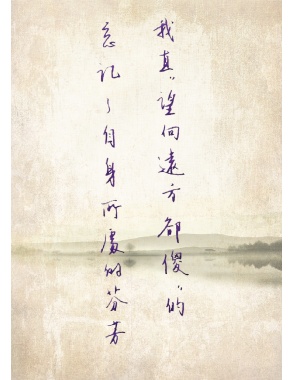 我直〃望向遠方卻傻〃的
忘記了自身所處的芬芳